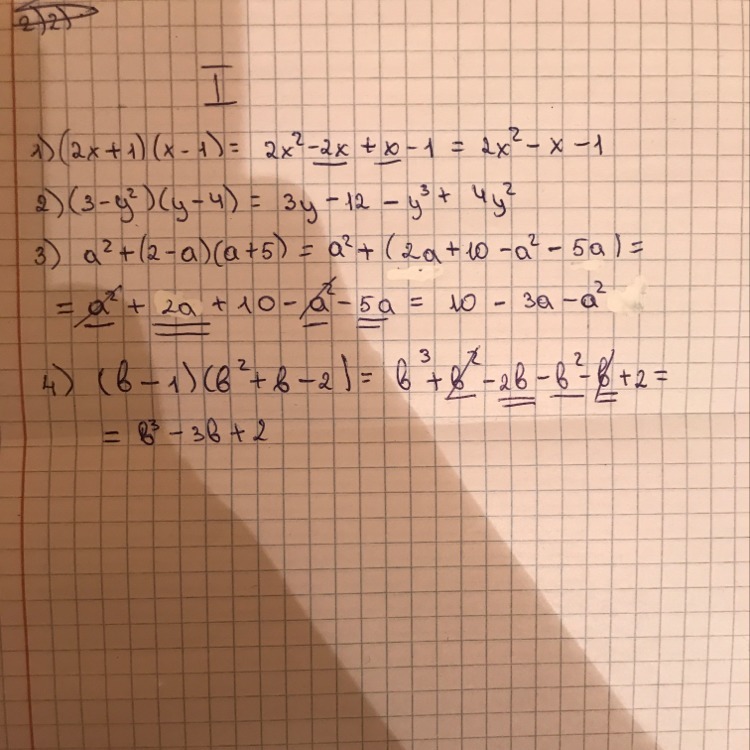 2)2)
I
1) (2x+1)(x-1) = 2x² - 2x + x - 1 = 2x² - x - 1
2) (3-y²)(y-4) = 3y - 12 - y³ + 4y²
3) a² + (2-a)(a+5) = a² + (2a + 10 - a² - 5a) =
= a² + 2a + 10 - a² - 5a = 10 - 3a - a²
4) (b-1)(b² + b - 2) = b³ + b² - 2b - b² - b + 2 =
= b³ - 3b + 2